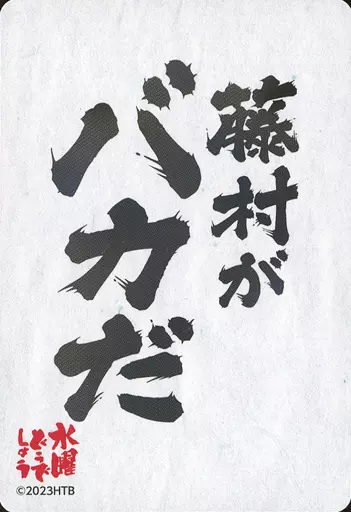 藤村が
バカだ
水曜
どうで
しょう
©2023HTB